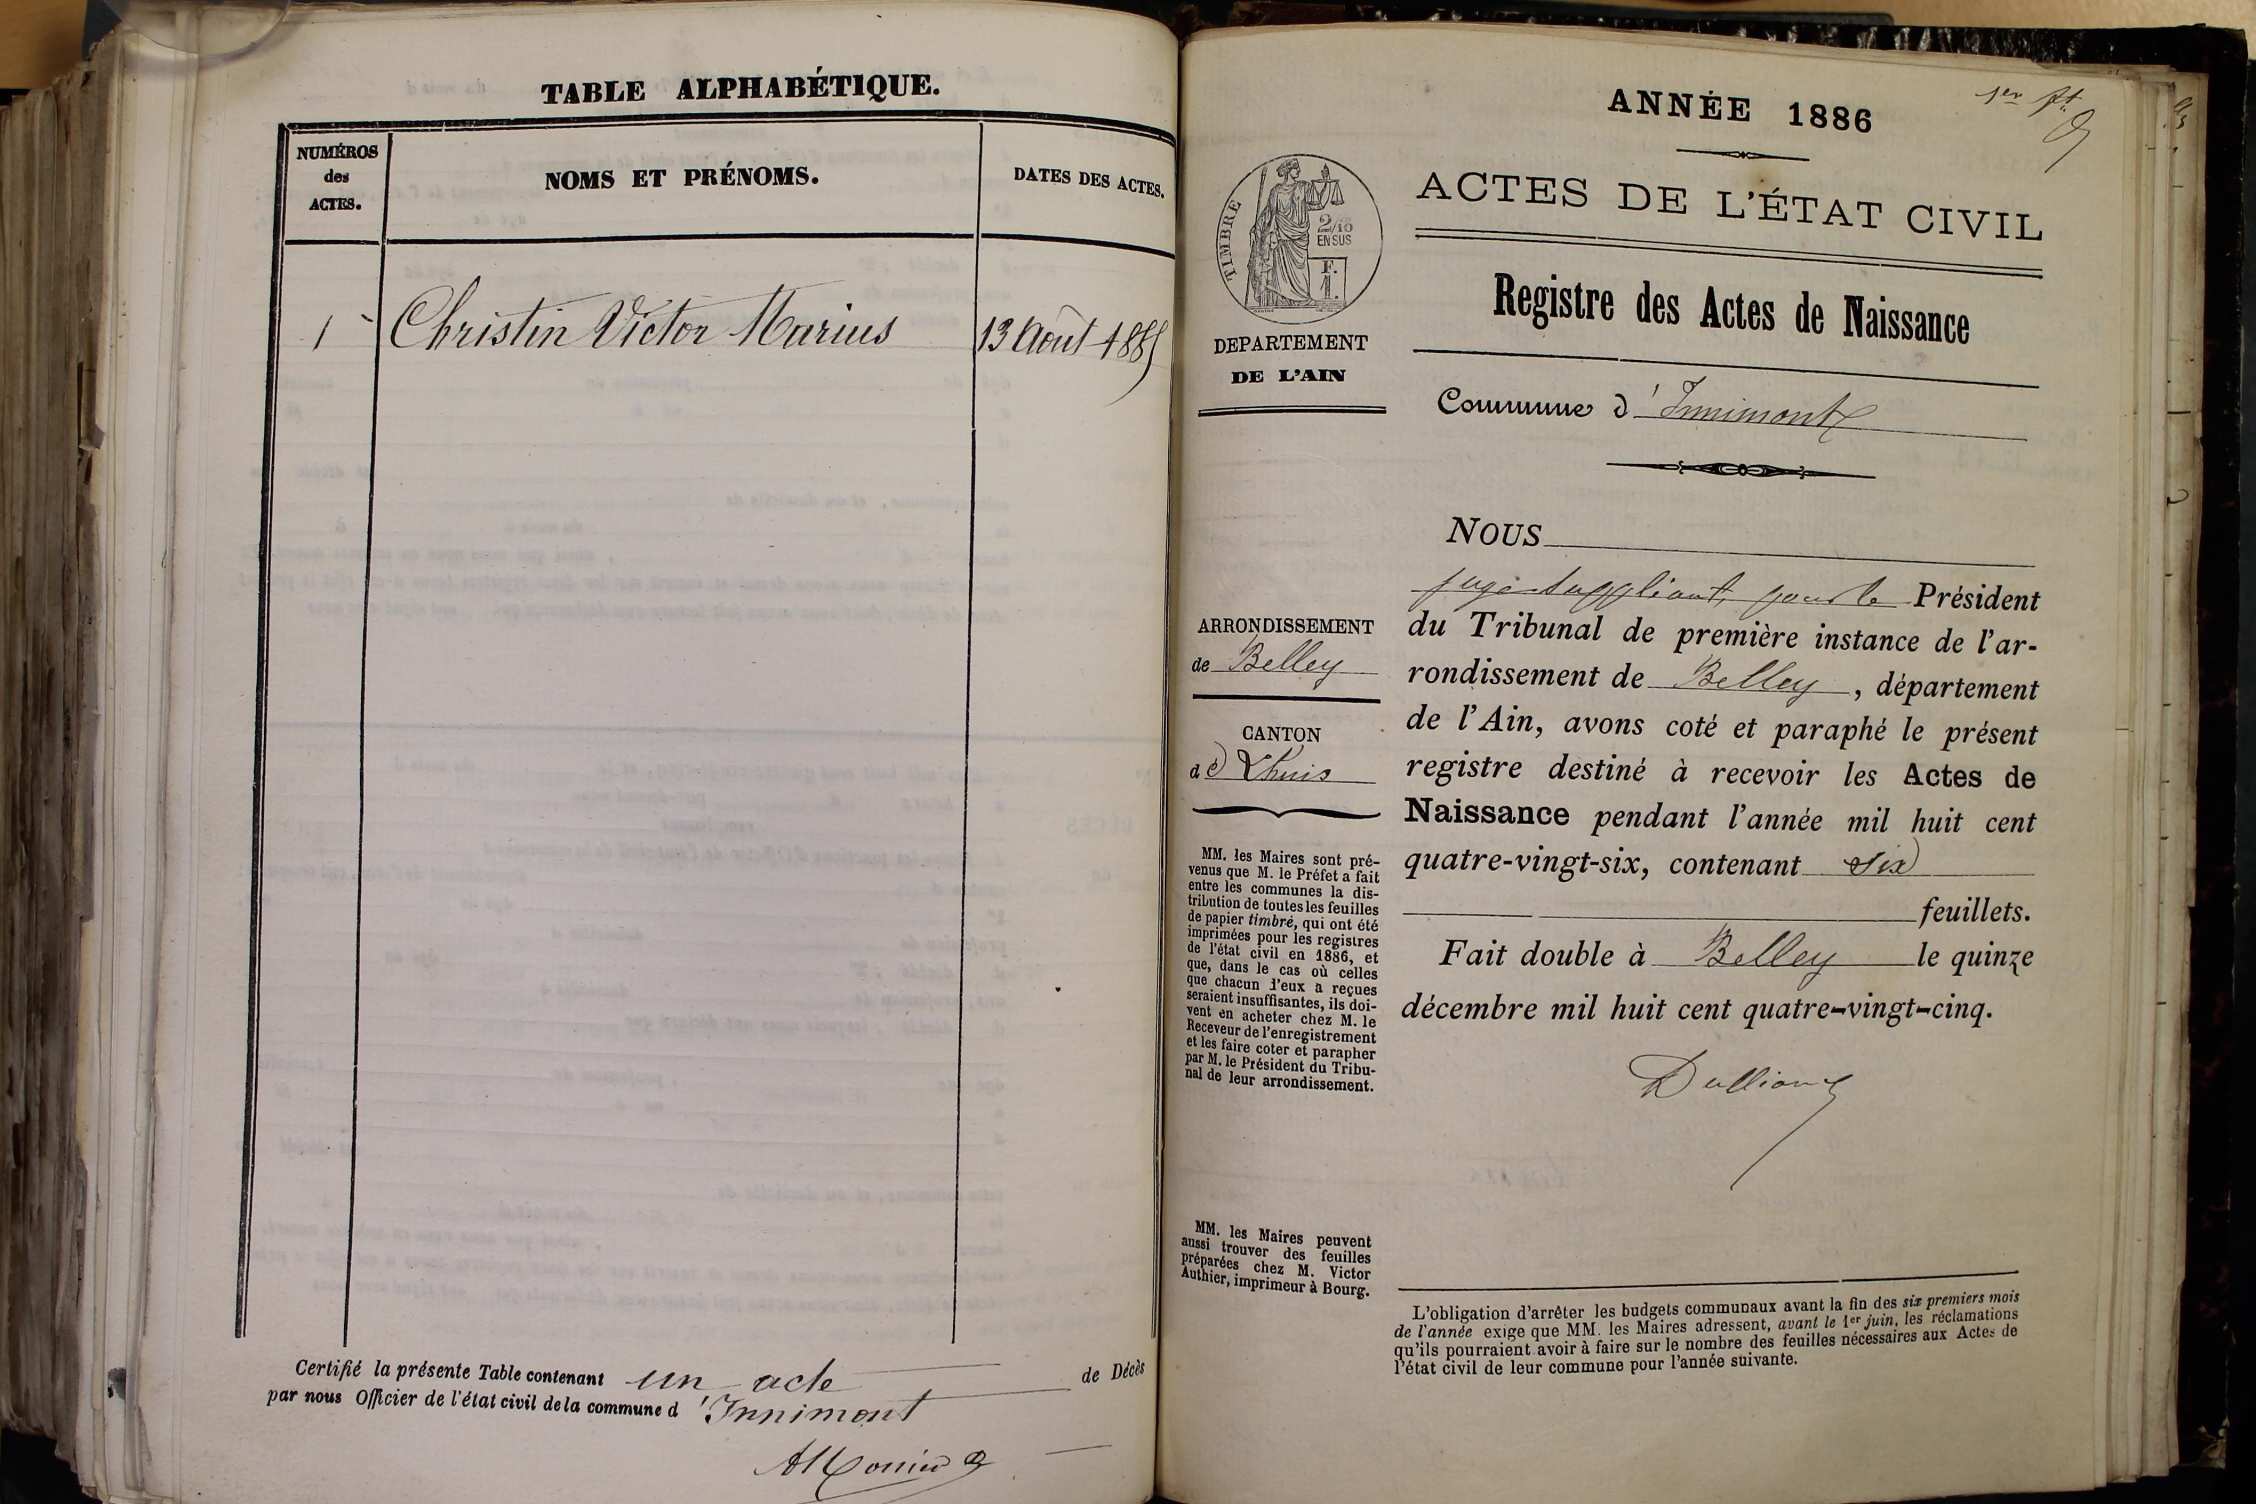 TABLE ALPHABÉTIQUE.
NUMÉROS
des
ACTES.
NOMS ET PRÉNOMS.
DATES DES ACTES.
1
Christin Victor Marius
13 Août 1885
Certifié la présente Table contenant un acte de Décès
par nous Officier de l'état civil de la commune d'Innimont
ANNÉE 1886
1er ft
ACTES DE L'ÉTAT CIVIL
TIMBRE
2/10
EN SUS
F.
1.
Registre des Actes de Naissance
DEPARTEMENT
DE L'AIN
Commune d'Innimont
NOUS
juge suppléant, pour le Président
du Tribunal de première instance de l'ar-
rondissement de Belley, département
de l'Ain, avons coté et paraphé le présent
registre destiné à recevoir les Actes de
Naissance pendant l'année mil huit cent
quatre-vingt-six, contenant six
feuillets.
Fait double à Belley le quinze
décembre mil huit cent quatre-vingt-cinq.
ARRONDISSEMENT
de Belley
CANTON
de Lhuis
MM. les Maires sont pré-
venus que M. le Préfet a fait
entre les communes la dis-
tribution de toutes les feuilles
de papier timbré, qui ont été
imprimées pour les registres
de l'état civil en 1886, et
que, dans le cas où celles
que chacun d'eux a reçues
seraient insuffisantes, ils doi-
vent en acheter chez M. le
Receveur de l'enregistrement
et les faire coter et parapher
par M. le Président du Tribu-
nal de leur arrondissement.
MM. les Maires peuvent
aussi trouver des feuilles
préparées chez M. Victor
Authier, imprimeur à Bourg.
L'obligation d'arrêter les budgets communaux avant la fin des six premiers mois
de l'année exige que MM. les Maires adressent, avant le 1er juin, les réclamations
qu'ils pourraient avoir à faire sur le nombre des feuilles nécessaires aux Actes de
l'état civil de leur commune pour l'année suivante.